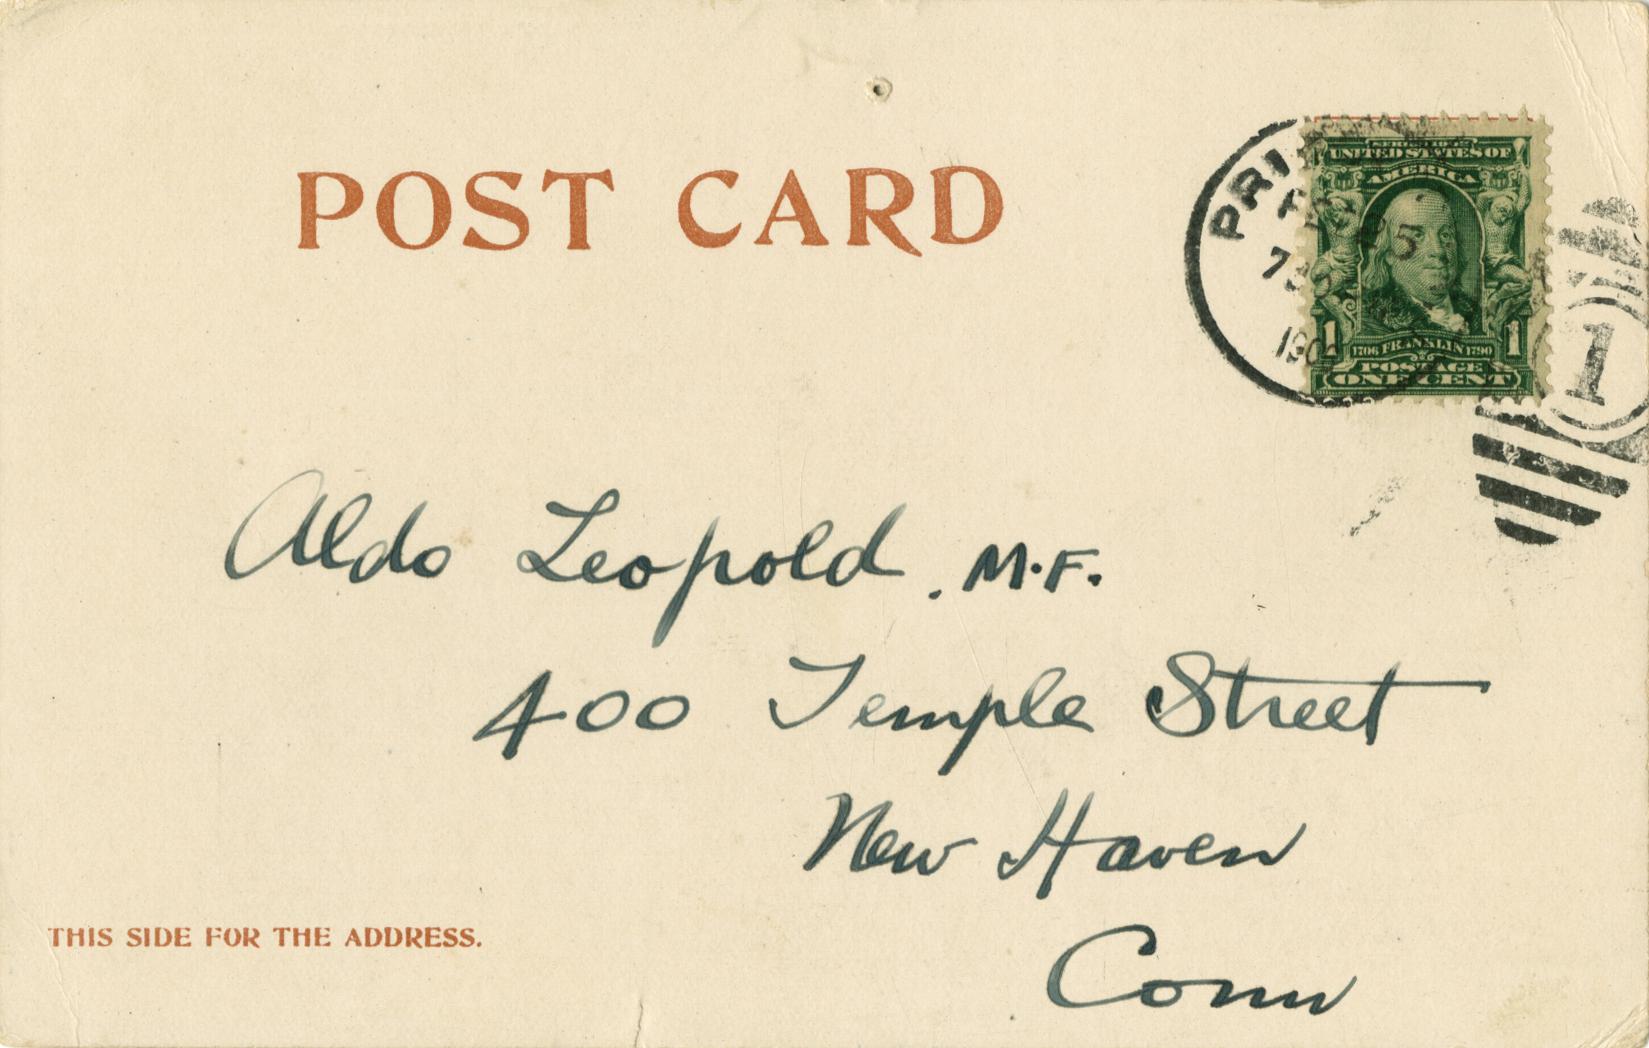 POST CARD
SERIES 1902
UNITED STATES OF
AMERICA
1 1706 FRANKLIN 1790 1
POSTAGE
ONE CENT
PRI
5
7
190
1
Aldo Leopold. M.F.
400 Temple Street
New Haven
Conn
THIS SIDE FOR THE ADDRESS.